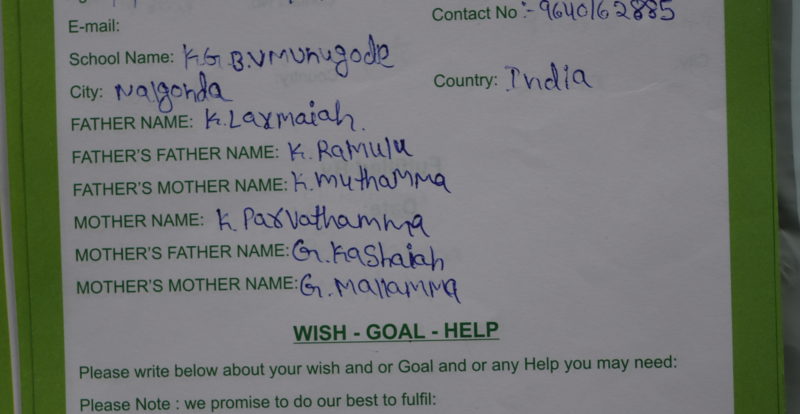 Contact No :- 9640162885
E-mail:
School Name: K.G.B.V Munugode
City: Nalgonda Country: India
FATHER NAME: K. Laxmaiah.
FATHER'S FATHER NAME: K. Ramulu
FATHER'S MOTHER NAME: K. Muthamma
MOTHER NAME: K Parvathamma
MOTHER'S FATHER NAME: G. Kashaiah
MOTHER'S MOTHER NAME: G. Mallamma
WISH - GOAL - HELP
Please write below about your wish and or Goal and or any Help you may need:
Please Note : we promise to do our best to fulfil: